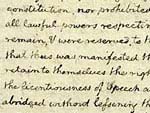 constitution, nor prohibited
all lawful powers respecting
remain, & were reserved to th
that thus was manifested th
retain to themselves the righ
the licentiousness of speech a
abridged without lessening th